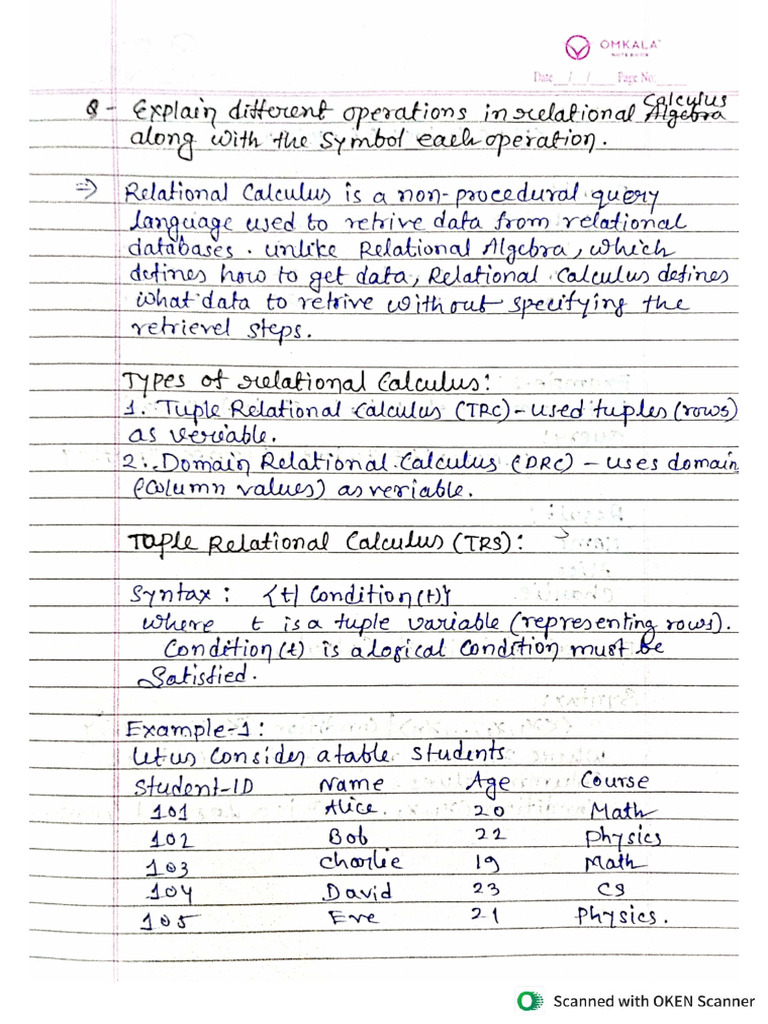 OMKALA
NOTEBOOK
Date __/__/__ Page No.
Q - Explain different operations in relational Calculus Algebra
along with the symbol each operation.
⇒ Relational Calculus is a non-procedural query
language used to retrive data from relational
databases. unlike Relational Algebra, which
defines how to get data, Relational Calculus defines
what data to retrive without specifying the
retrievel steps.
Types of relational Calculus:
1. Tuple Relational Calculus (TRC) - used tuples (rows)
as veriable.
2. Domain Relational Calculus (DRC) - uses domain
(Column values) as veriable.
Tople Relational Calculus (TRS):
Syntax : {t| Condition(t)}
where t is a tuple variable (representing rows).
Condition(t) is a logical condition must be
Satisfied.
Example-1:
let us Consider a table students
Student-ID Name Age Course
101 Alice. 20 Math
102 Bob 22 Physics
103 Charlie 19 Math
104 David 23 CS
105 Eve 21 Physics.
Scanned with OKEN Scanner